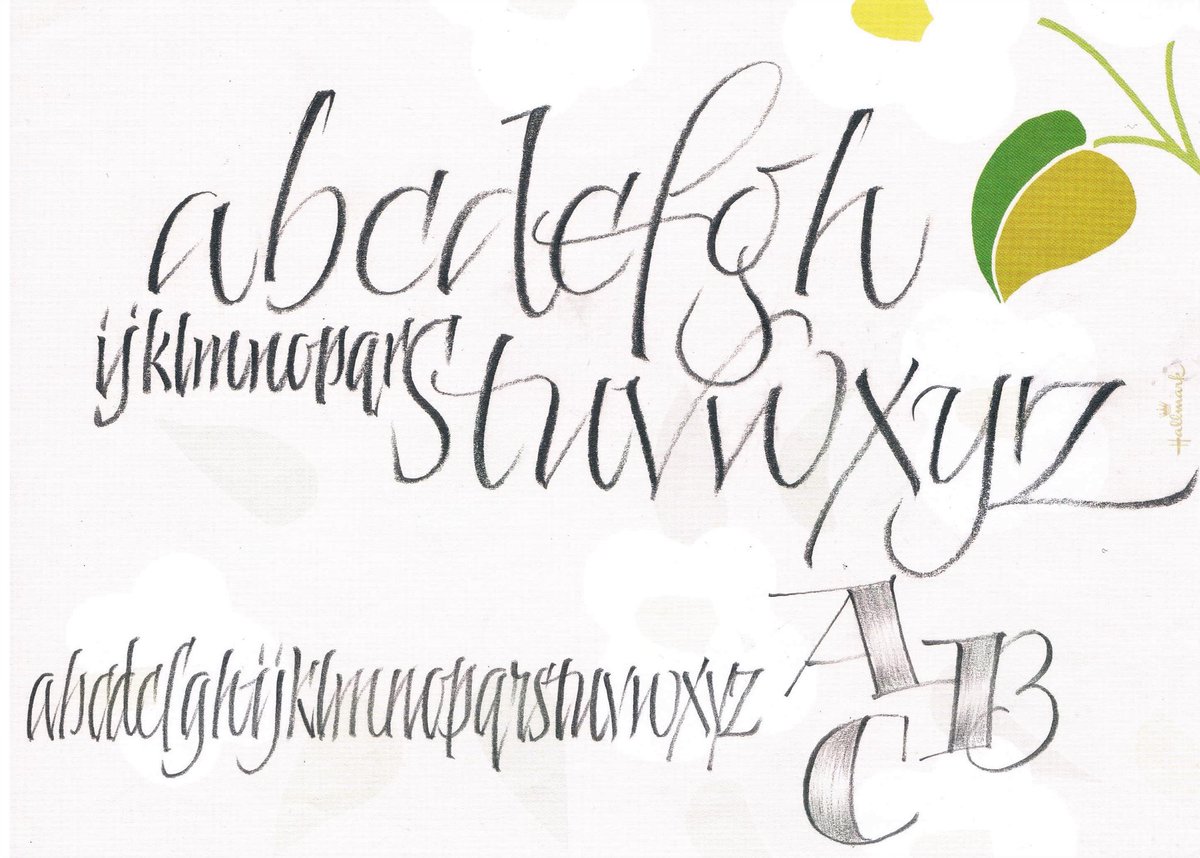 abcdefgh
ijklmnopqrstuvwxyz
Hallmark
abcdefghijklmnopqrstuvwxyz
A
B
C